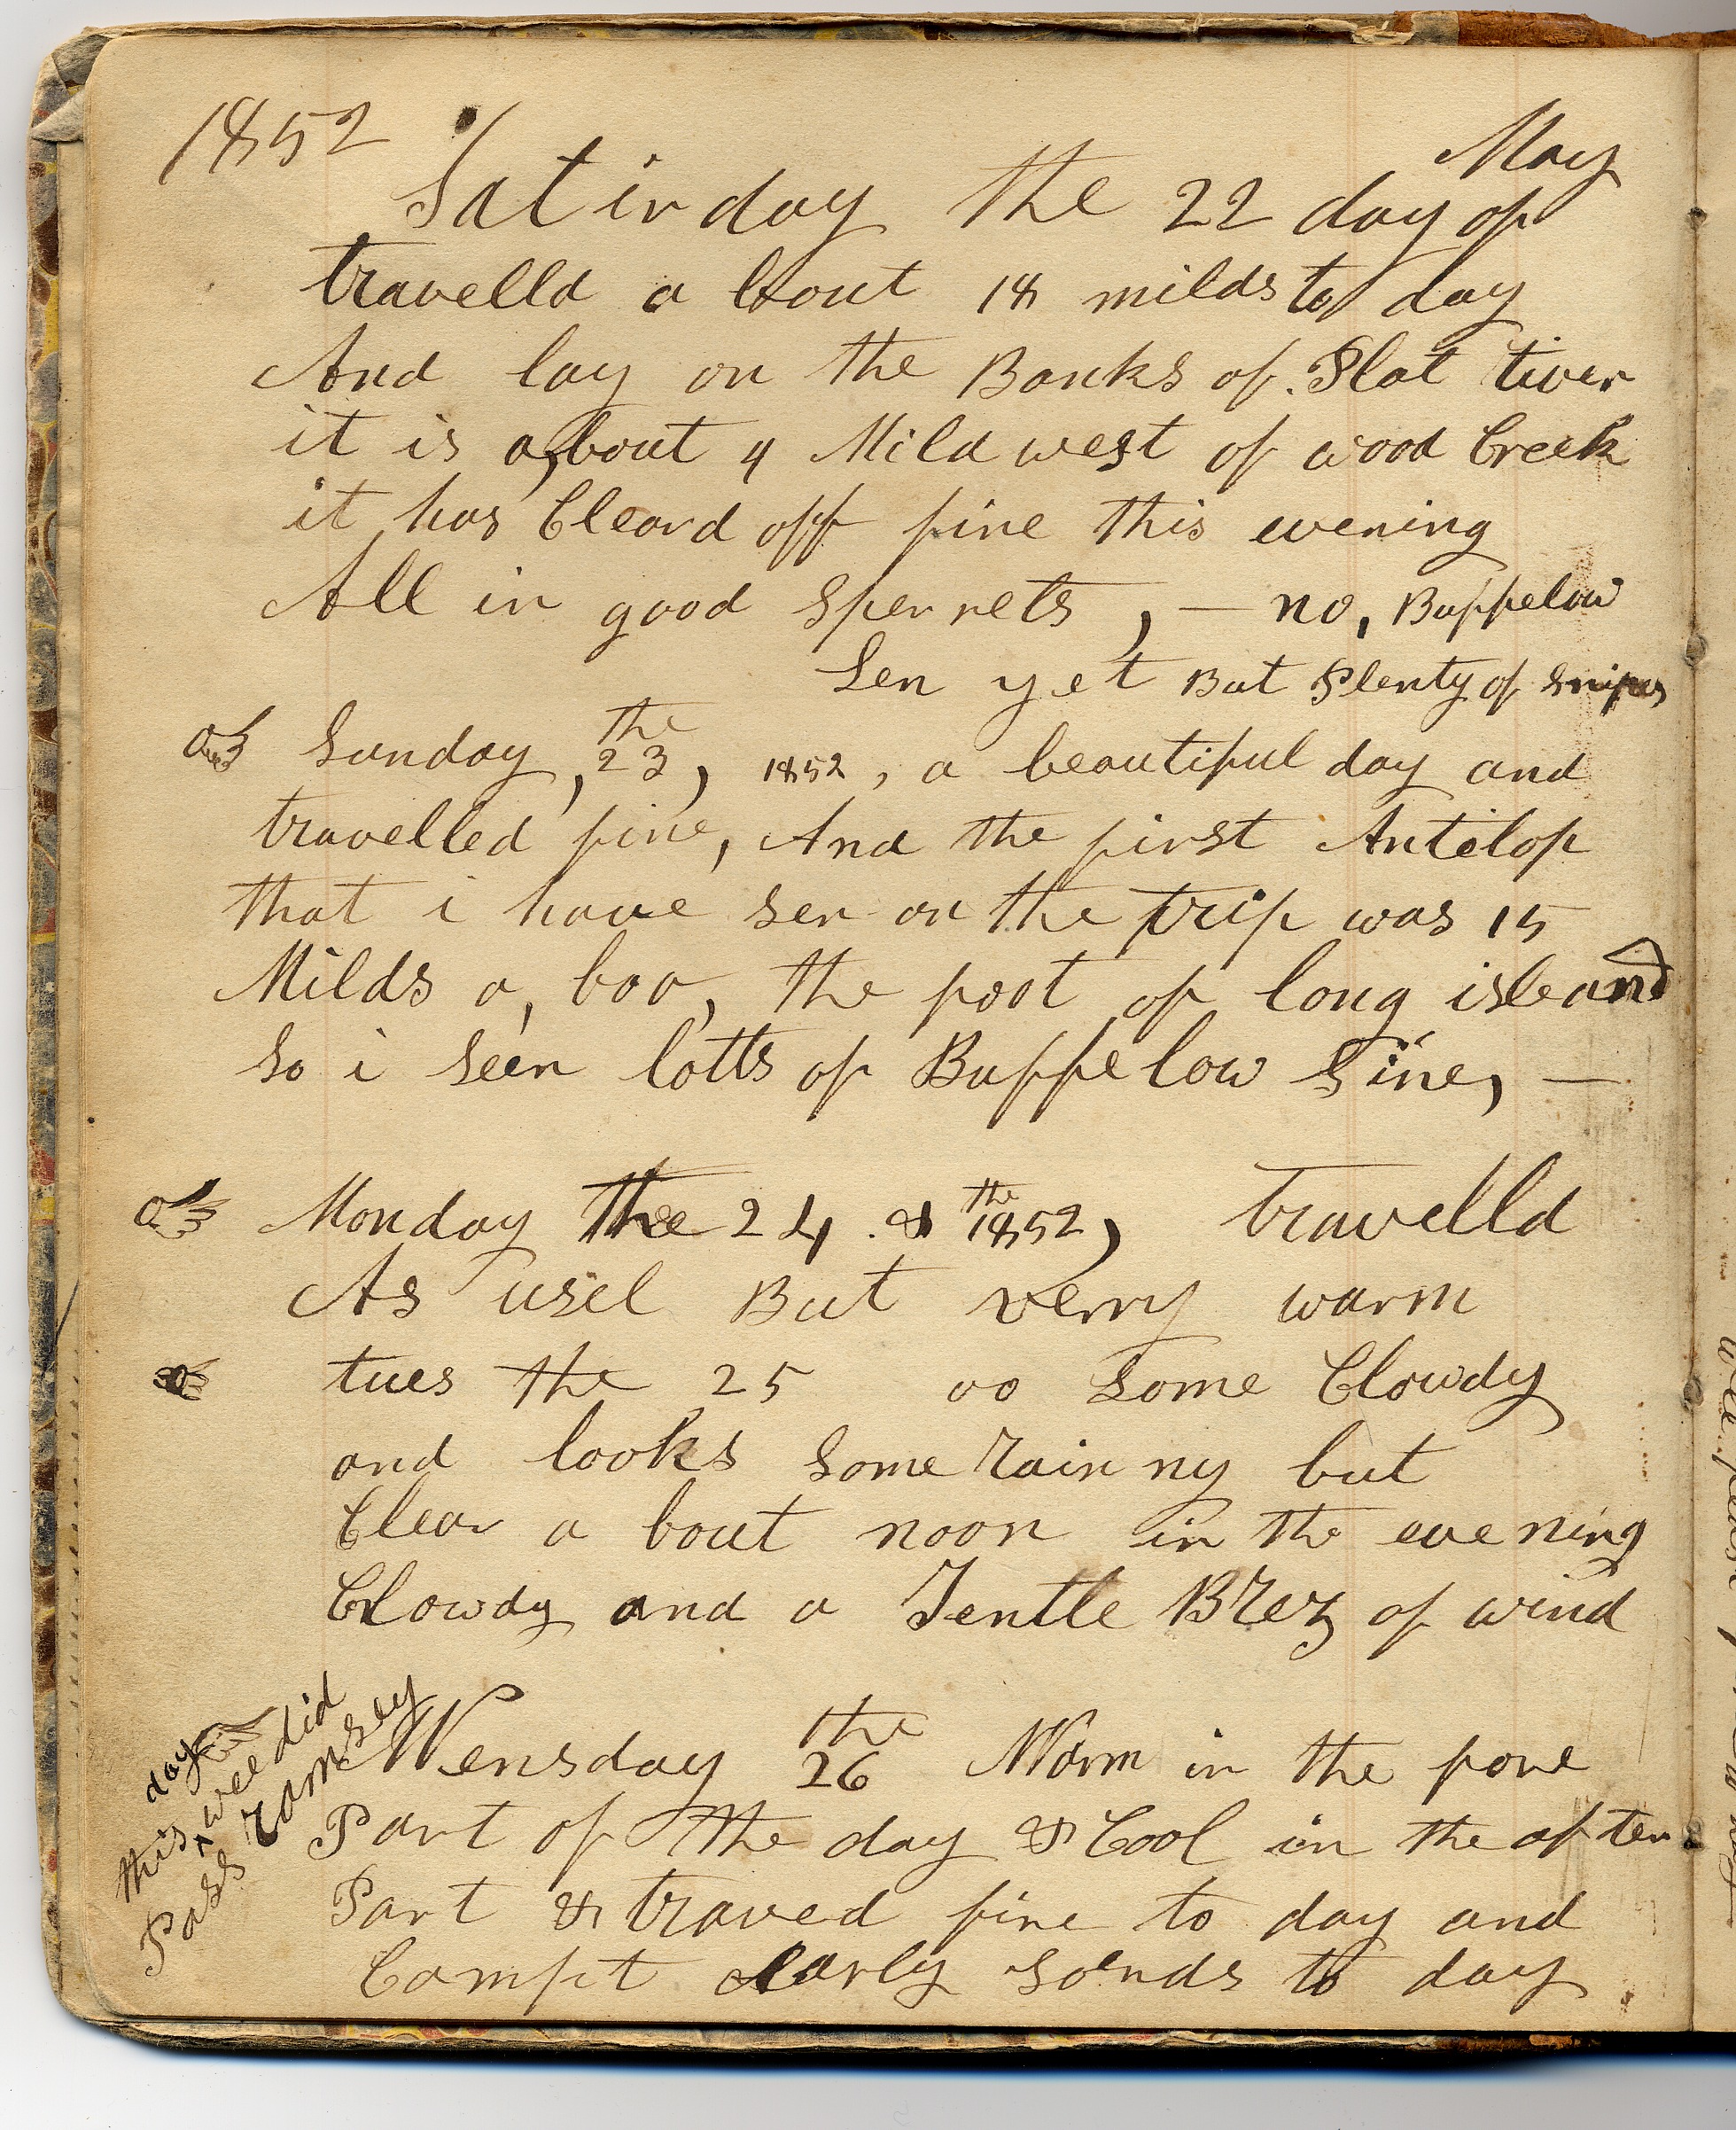 1852
May
Satirday the 22 day of
travelld a bout 18 milds to day
And lay on the Banks of Plat river
it is a,bout 4 Mild west of wood Creek
it has Cleard off fine this evening
All in good Sperrets, — no, Buffelow
Sen yet But Plenty of Snipes
Sunday, the 23, 1852, a beautiful day and
travelled fine, And the first Antelop
that i have sen on the trip was 15
Milds a, boo, the foot of long isleand
So i seen lotts of Buffelow Sine, —
Monday the 24 & the 1852, travelld
As usel But verry warm
tues the 25 oo Some Clowdy
and looks Some rain ny but
Clear a bout noon in the evening
Clowdy and a Jentle Brez of wind
Wensday the 26 Warm in the fore
Part of the day & Cool in the after
Part & traved fine to day and
Campt early Soends to day
this day wee did
Pass ramsey